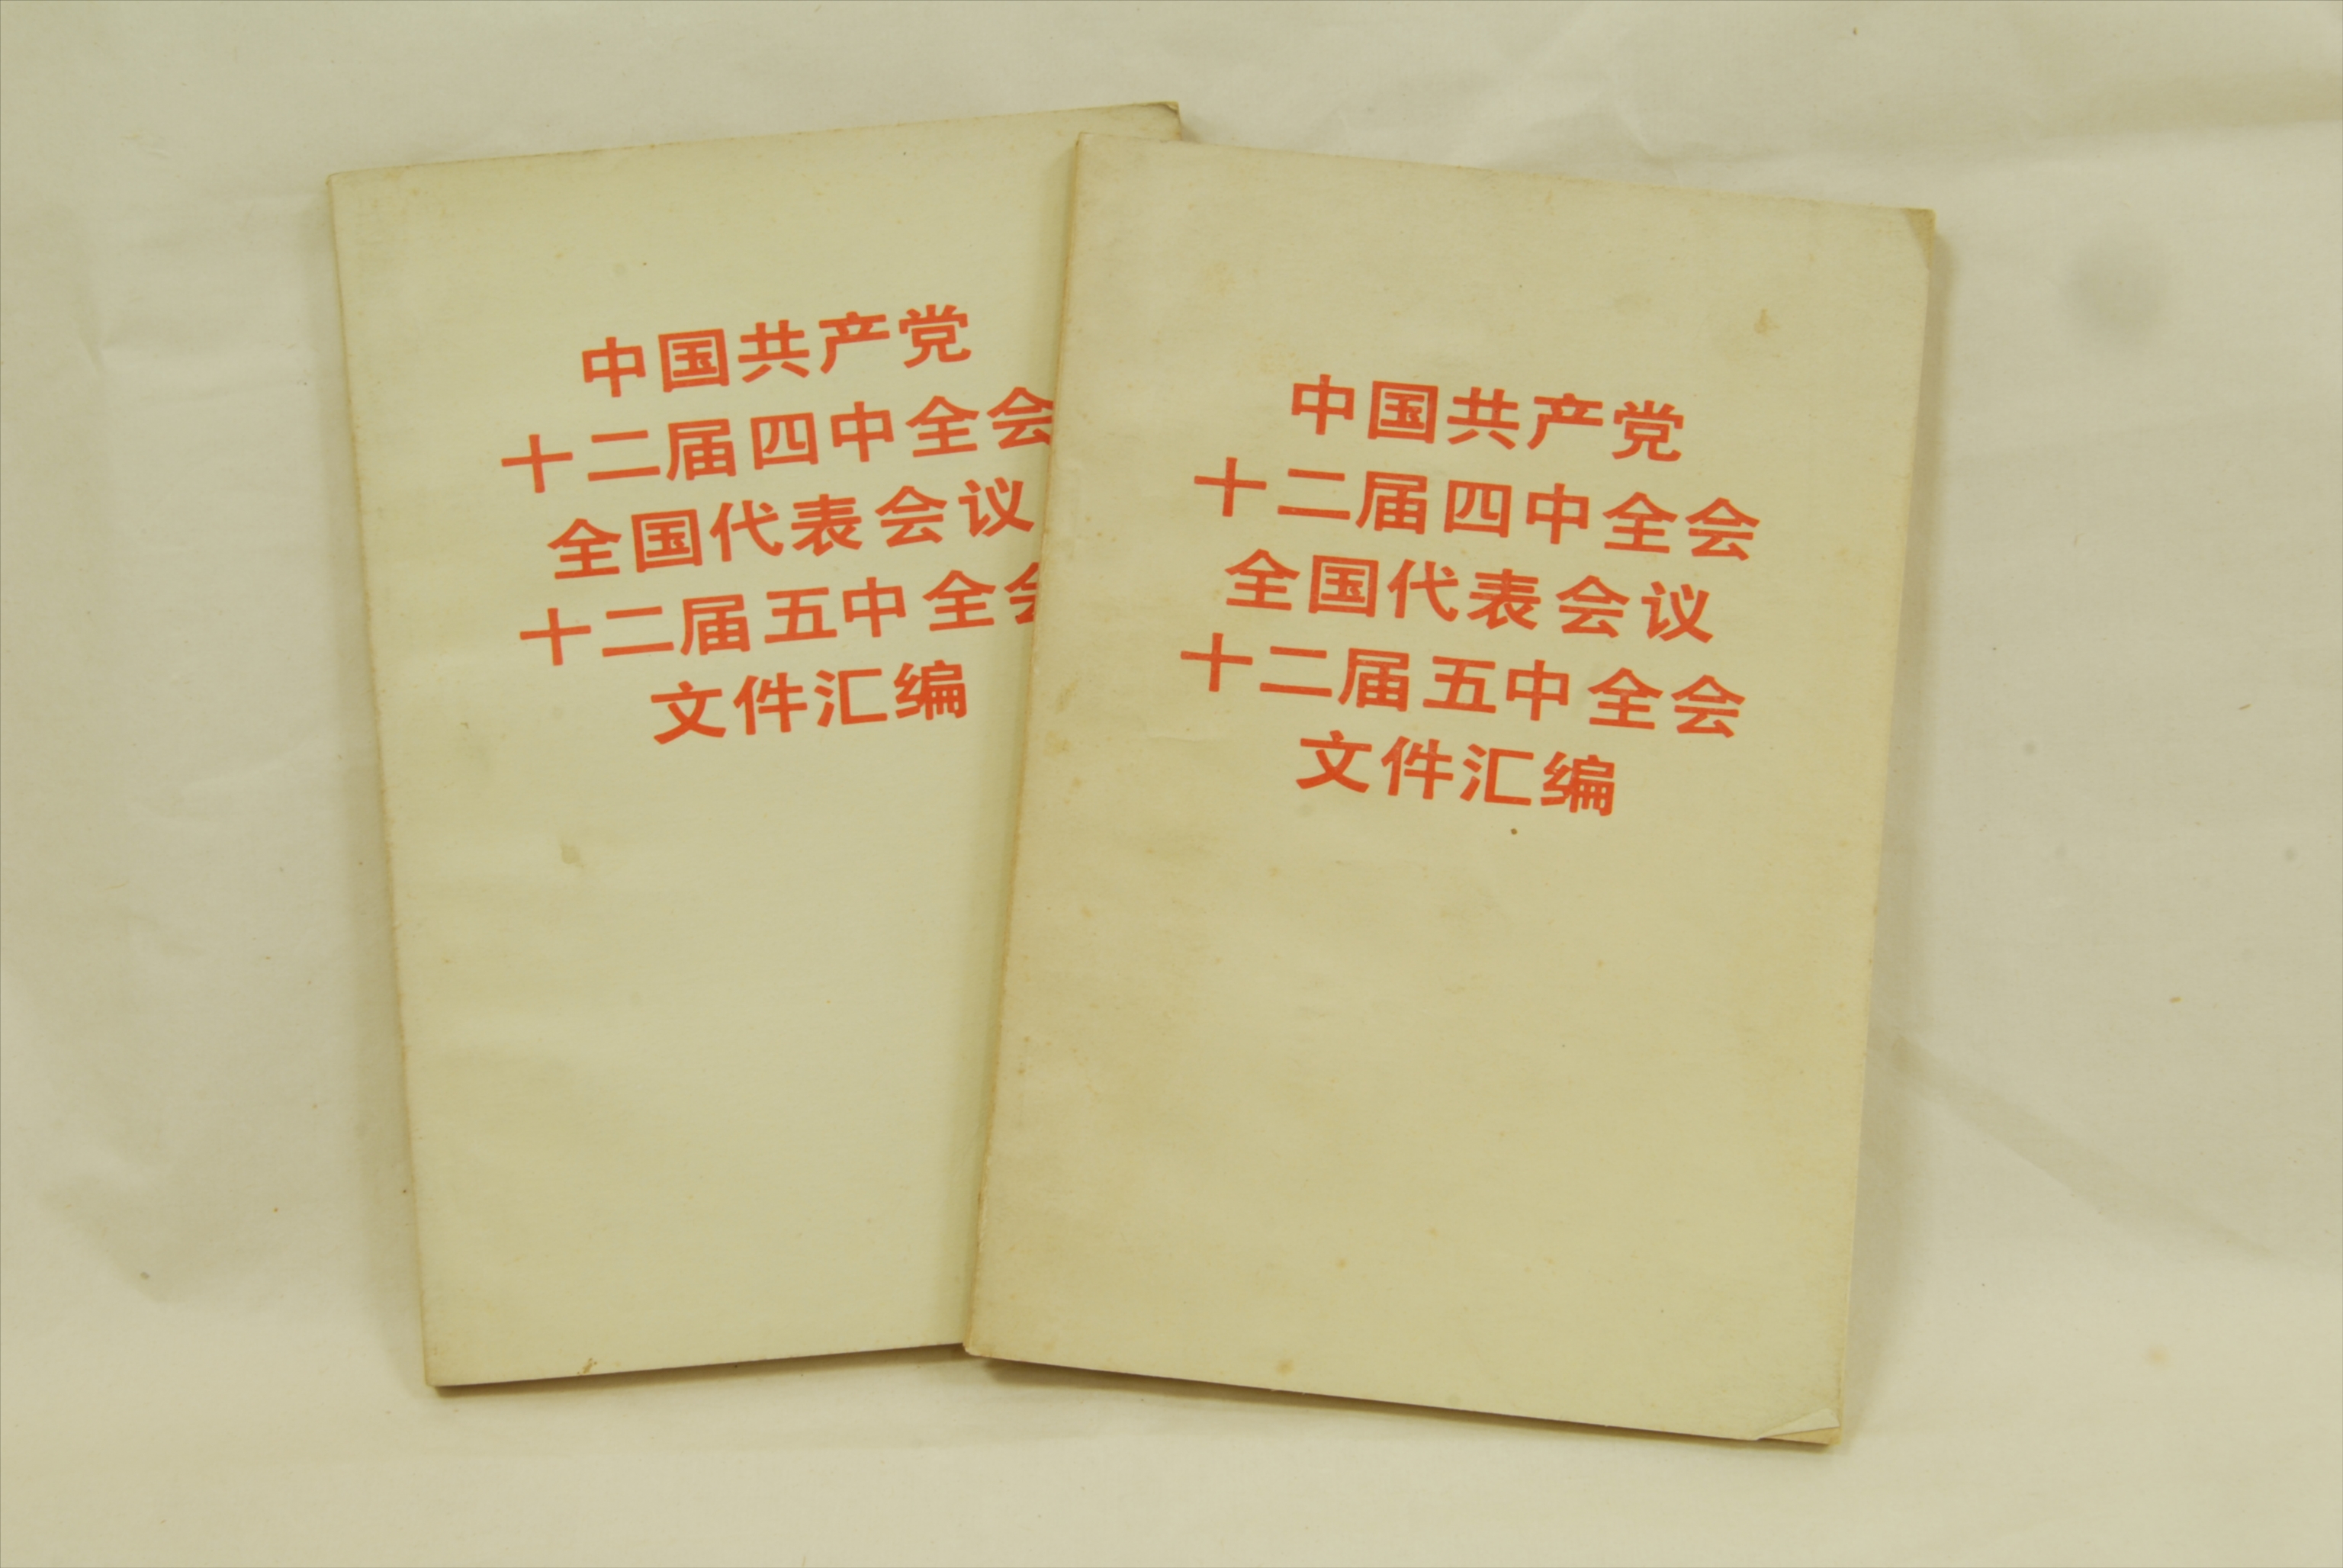 中国共产党
十二届四中全会
全国代表会议
十二届五中全会
文件汇编
中国共产党
十二届四中全会
全国代表会议
十二届五中全会
文件汇编